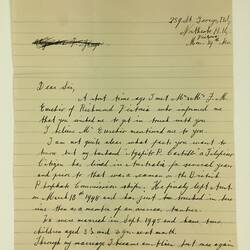 259 St. Georges Rd,
Northcote N.16
Victoria
Dear Sir,
A short time ago I met Mr & Mrs F. M.
Eurchor of Richmond Victoria who informed me
that you wished me to get in touch with you
I believe Mr Eurchor mentioned me to you.
I am not quite clear what facts you want to
know but my husband P. Castillo a Filipino
Citizen has lived in Australia for several years
and prior to that was a seaman on the British
Phosphate Commission ships. He finally left
on March 1948 and has just touched in here
time then as a member of an merchant
We were married in Sept 1945 and have two
children aged 3 and a year and a month.
Through my marriage I became an alien, but once again